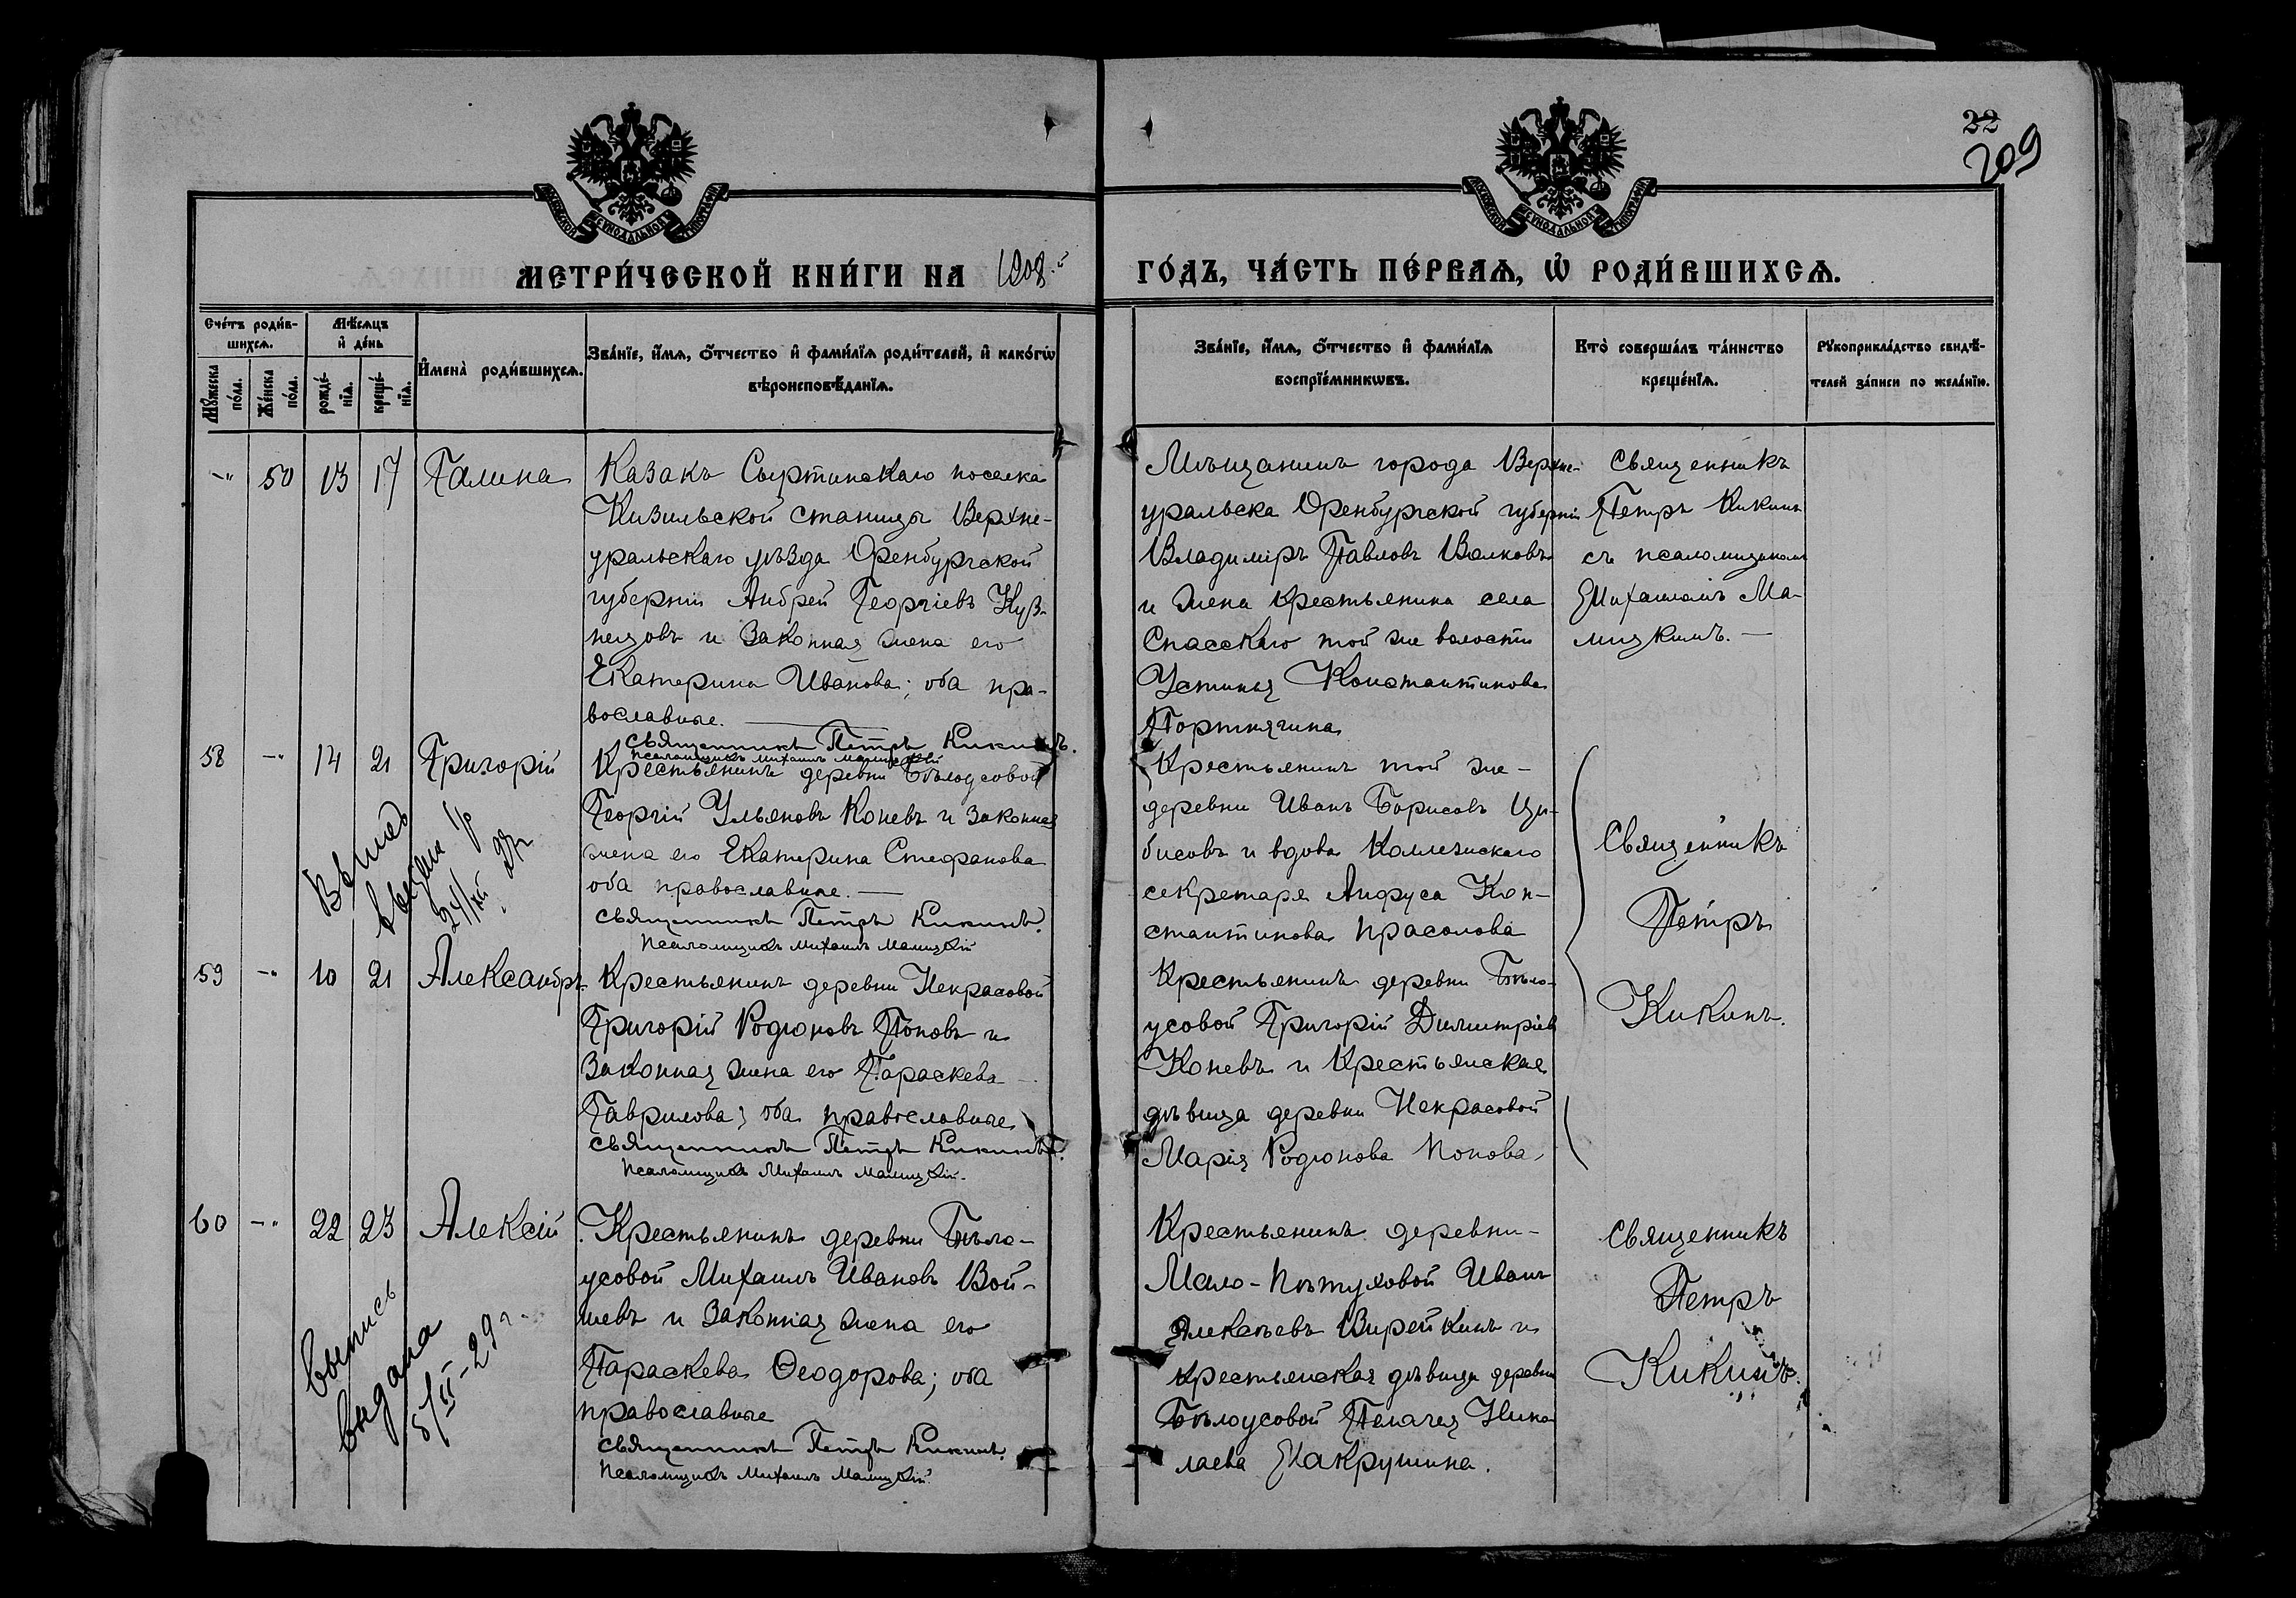 22
209
МОСКОВСКОЙ СѴНОДАЛЬНОЙ ТИПОГРАФІИ
МОСКОВСКОЙ СѴНОДАЛЬНОЙ ТИПОГРАФІИ
МЕТРИ́ЧЕСКОЙ КНИ́ГИ НА 1908.й
ГО́ДЪ, ЧА́СТЬ ПЕ́РВАѦ, Ѡ҆ РОДИ́ВШИХСѦ.
Сче́тъ роди́в-
шихсѧ.
Мѣ́сѧцъ
и҆ де́нь
Мꙋ́жеска
по́ла.
Же́нска
по́ла.
рожде́-
нїѧ.
креще́-
нїѧ.
И҆мена̀ роди́вшихсѧ.
Зва́нїе, и҆́мѧ, ѻ҆́тчество и҆ фами́лїѧ роди́телей, и҆ како́гѡ
вѣроисповѣ́данїѧ.
Зва́нїе, и҆́мѧ, ѻ҆́тчество и҆ фами́лїѧ
воспрїе́мникѡвъ.
Кто̀ соверша́лъ та́инство
креще́нїѧ.
Рꙋкоприкла́дство свидѣ́-
телей за́писи по жела́нїю.
-„ 50 13 17 Галина
Казакъ Сыртинскаго поселка
Кизильской станицы Верхне-
уральскаго уѣзда Оренбургской
губерніи Андрей Георгіевъ Куз-
нецовъ и законная жена его
Екатерина Иванова; оба пра-
вославные.
Священникъ Петръ Кикинъ.
Псаломщикъ Михаилъ Малицкій
Мѣщанинъ города Верхне-
уральска Оренбургской губерніи
Владиміръ Павловъ Волковъ
и жена крестьянина села
Спасскаго той же волости
Устинья Константинова
Портнягина
Священникъ
Петръ Кикинъ
съ псаломщикомъ
Михаиломъ Ма-
лицкимъ.—
58 -„ 14 21 Григорій
Крестьянинъ деревни Бѣлоусовой
Георгій Ульяновъ Коневъ и законная
жена его Екатерина Стефанова
оба православные.—
Священникъ Петръ Кикинъ.
Псаломщикъ Михаилъ Малицкій
24/XII 27г
Крестьянинъ той же-
деревни Иванъ Борисовъ Ци-
бисовъ и вдова Коллежскаго
секретаря Анфуса Кон-
стантинова Прасолова
Священникъ
Петръ
Кикинъ.
59 -„ 10 21 Александръ
Крестьянинъ деревни Некрасовой
Григорій Родіоновъ Поповъ и
законная жена его Параскева
Гаврилова; оба православные
Священникъ Петръ Кикинъ.
Псаломщикъ Михаилъ Малицкій.
Крестьянинъ деревни Бѣло-
усовой Григорій Димитріевъ
Коневъ и крестьянская
дѣвица деревни Некрасовой
Марія Родіонова Попова
60 -„ 22 23 Алексій
Крестьянинъ деревни Бѣло-
усовой Михаилъ Ивановъ Вой-
шевъ и законная жена его
Параскева Ѳеодорова; оба
православные
Священникъ Петръ Кикинъ.
Псаломщикъ Михаилъ Малицкій.
Выпись
выдана
5/II-29г.
Крестьянинъ деревни-
Мало-Пѣтуховой Иванъ
Алексѣевъ Вирейкинъ и
крестьянская дѣвица деревни
Бѣлоусовой Пелагея Нико-
лаева Накрушина.
Священникъ
Петръ
Кикинъ.